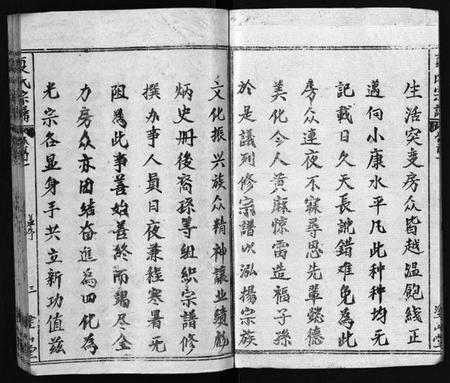 生活突变房众皆越温饱线正
迈向小康水平凡此种种均无
记载日久天长讹错难免为此
房众连夜不寐寻思先辈懿德
美化今人黄麻惊雷造福子孫
於是議列修宗譜以泓揚宗族
文化振兴族众精神讓业績彪
炳史册後裔孫等組织宗譜修
撰办事人員日夜兼程寒暑无
阻為此事善始善终而竭尽全
力房众亦团结奋進為四化為
光宗各显身手共立新功值兹
氏宗譜
三